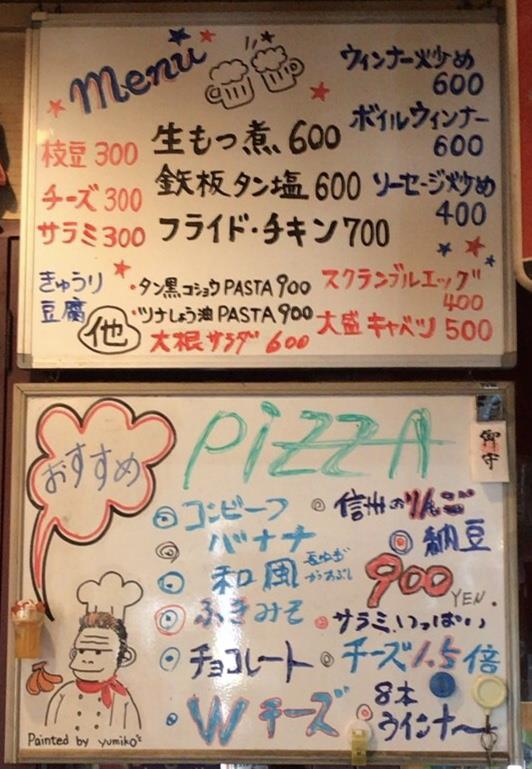 Menu
枝豆 300
チーズ 300
サラミ 300
生もつ煮 600
鉄板タン塩 600
フライド・チキン 700
ウィンナー炒め
600
ボイルウィンナー
600
ソーセージ炒め
400
きゅうり
豆腐
他
・タン黒コショウPASTA 900
・ツナしょう油PASTA 900
大根サラダ 600
スクランブルエッグ
400
大盛キャベツ 500
おすすめ
PiZZA
◎コンビーフ
◎バナナ
◎和風
◎ふきみそ
◎チョコレート
Wチーズ
◎信州のりんご
◎納豆
900
YEN.
サラミ、いっぱい
◎チーズ1.5倍
8本
ウインナー
御守
Painted by yumiko